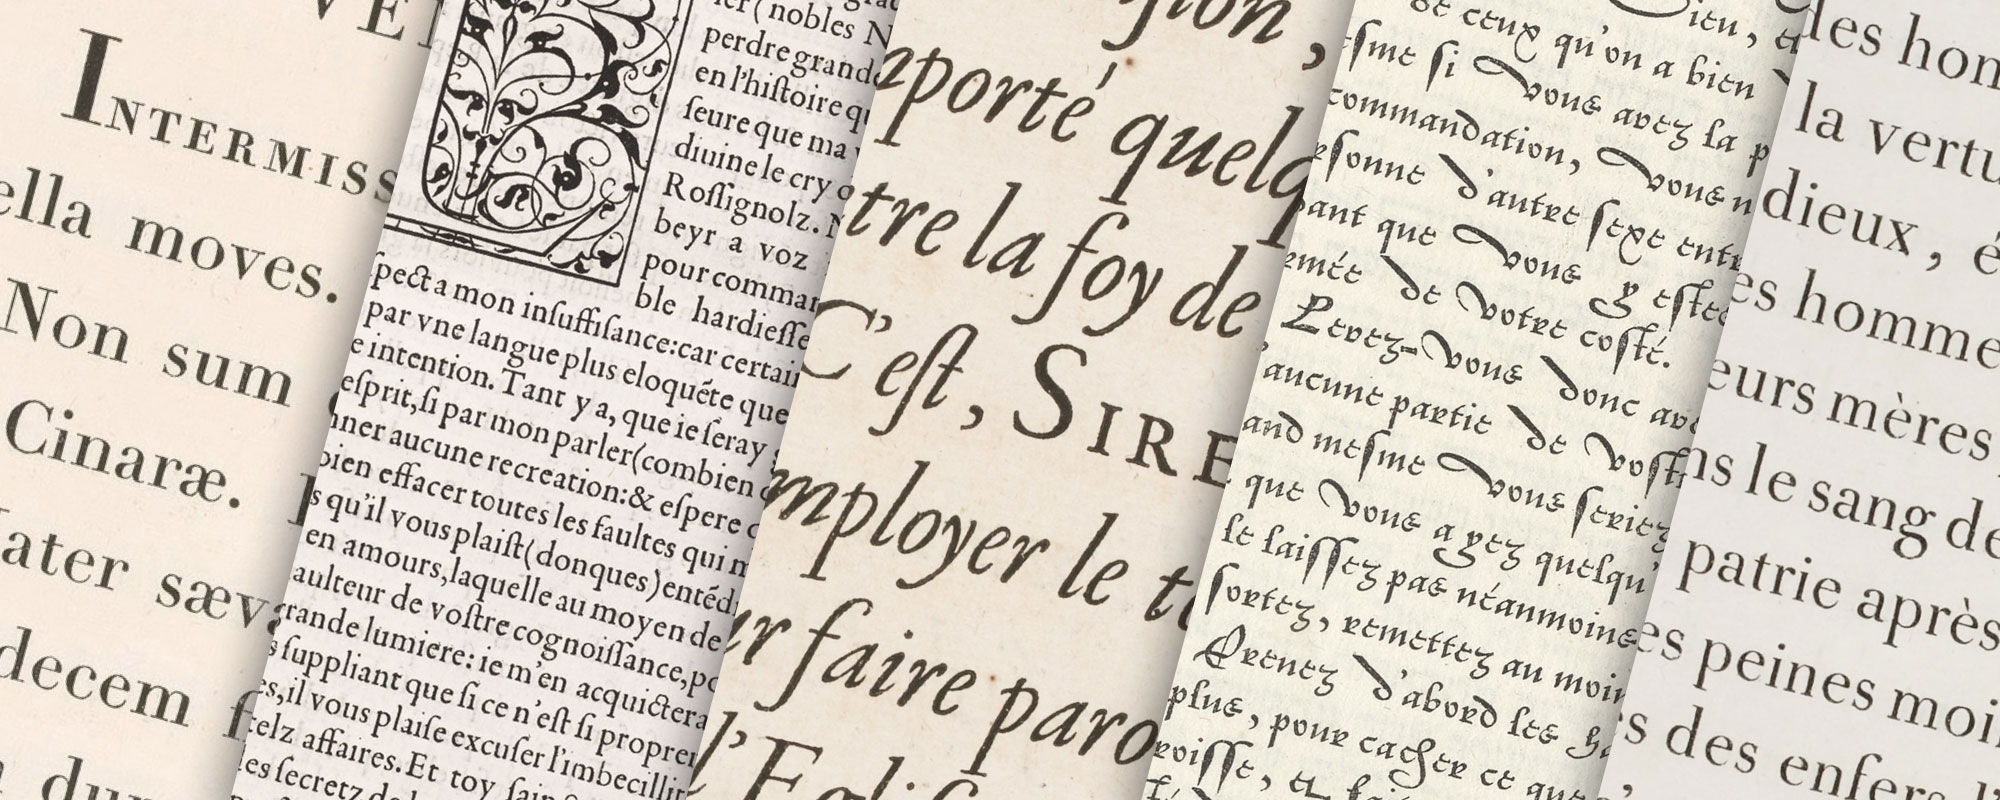 VE
INTERMISS
ella moves.
Non sum
Cinaræ.
ater sæv
decem f
dum
nobles N
perdre grand
en l'hiſtoire q
ſeure que ma
diuine le cry
Roſſignolz. N
beyr a voz
pour comman
ble hardieſſe
ſpect a mon inſuffiſance: car certai
par vne langue plus eloquẽte que
e intention. Tant y a, que ie ſeray
eſprit, ſi par mon parler (combien
ner aucune recreation: & eſpere
bien effacer toutes les faultes qui m
s qu'il vous plaiſt (donques) entẽd
en amours, laquelle au moyen de
aulteur de voſtre cognoiſſance, po
grande lumiere: ie m'en acquictera
s ſuppliant que ſi ce n'eſt ſi proprem
es, il vous plaiſe excuſer l'imbecillit
telz affaires. Et toy ſain
es ſecretz de
ſion,
aporté quelq
tre la foy de
C'eſt, SIRE
mployer le t
ur faire paro
l'Egliſ
ieu, et
de ceux qu'on a bien
eſme ſi vous avez la p
commandation, vous n
erſonne d'autre ſexe entr
pant que vous y eſtes
rmée de votre coſté.
Levez-vous donc av
aucune partie de voſt
and meſme vous ſeriez
que vous ayez quelqu'
le laiſſez pas néanmoins
ſortez, remettez au moin
Prenez d'abord les
plus, pour cacher ce que
roiſſe, et
des hom
la vertu
dieux, é
es homme
eurs mères,
ns le sang de
patrie après
es peines moi
s des enfers